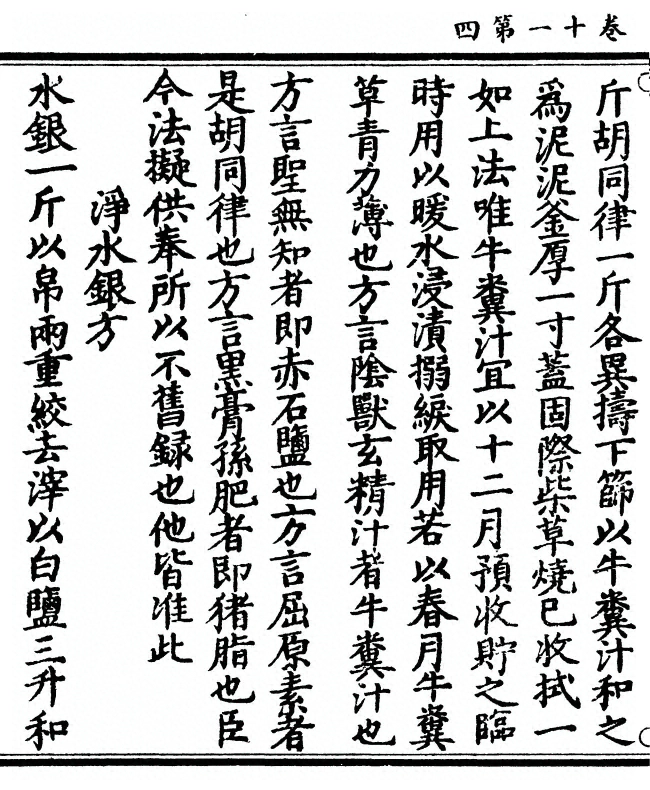 卷十一第四
斤胡同律一斤各異擣下篩以牛糞汁和之
為泥泥釜厚一寸蓋固際柴草燒已收拭一
如上法唯牛糞汁宜以十二月預收貯之臨
時用以暖水浸漬搦綟取用若以春月牛糞
草青力薄也方言陰獸玄精汁者牛糞汁也
方言聖無知者即赤石鹽也方言屈原素者
是胡同律也方言黑膏孫肥者即猪脂也臣
今法擬供奉所以不舊録也他皆准此
淨水銀方
水銀一斤以帛兩重絞去滓以白鹽三升和